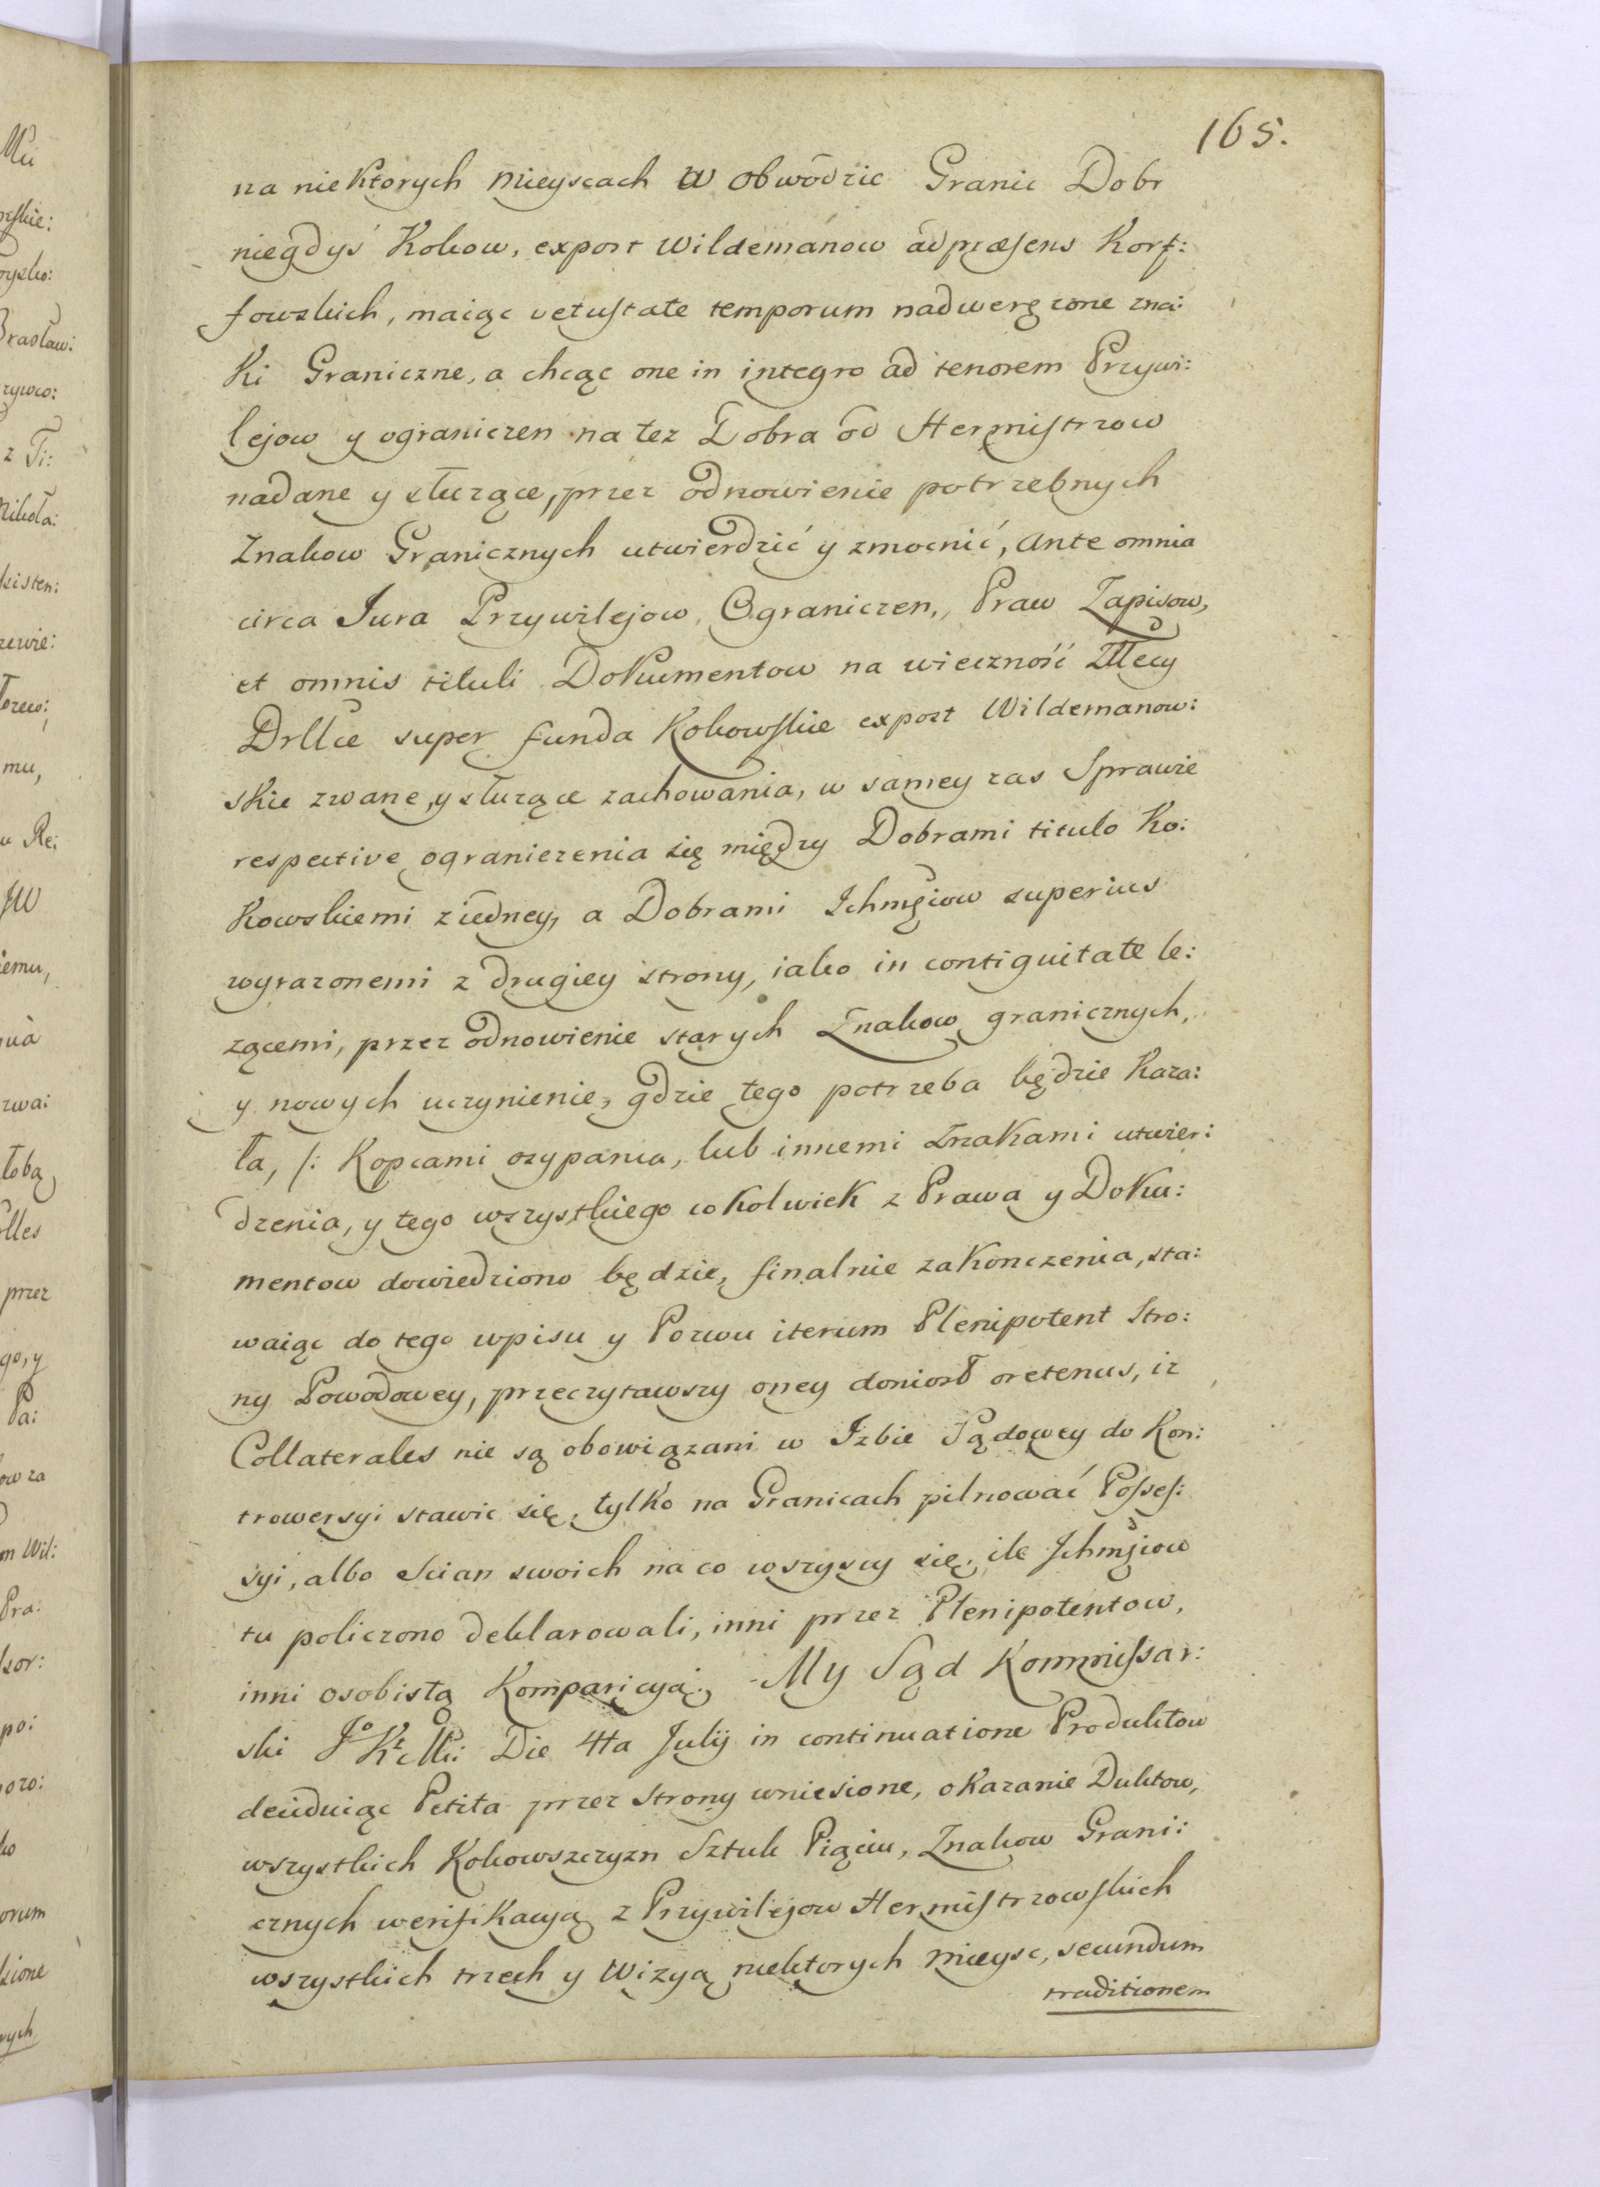 165.
na niektorych mieyscach w obwodzie Granic Dobr
niegdyś Kokow, expost Wildemanow ad præsens Korf:
fowskich, maiąc vetustate temporum nadweręzone zna:
ki Graniczne, a chcąc one in integro ad tenorem Przywi:
lejow y ograniczen na tez Dobra od Hermistrzow
nadane y służące, przez odnowienie potrzebnych
Znakow Granicznych utwierdzić y zmocnić, ante omnia
circa Jura Przywilejow, Ograniczen, Praw Zapisow,
et omnis tituli Dokumentow na wieczność
super funda Kokowskie expost Wildemanow:
skie zwane, y służące zachowania, w samey zas Sprawie
respective ograniczenia się między Dobrami titulo Ko:
kowskiemi z iedney, a Dobrami Ichmściow superius
wyrazonemi z drugiey strony, iako in contiguitate le:
zącemi, przez odnowienie starych Znakow granicznych,
y nowych uczynienie, gdzie tego potrzeba będzie kaza:
ła, /: Kopcami ozypania, lub innemi Znakami utwier:
dzenia, y tego wszystkiego cokolwiek z Prawa y Doku:
mentow dowiedziono będzie, finalnie zakonczenia, sta:
waiąc do tego wpisu y Pozwu iterum Plenipotent Stro:
ny Powodowey, przeczytawszy oney doniosł oretenus, iz
Collaterales nie są obowiązani w Izbie Sądowey do Kon:
trowersyi stawic się, tylko na Granicach pilnować Posses:
syi, albo Scian swoich na co wszyscy się, ile Ichmściow
tu policzono deklarowali, inni przez Plenipotentow,
inni osobistą Komparicyą. My Sąd Kommissar:
ski Jo Kr Mci Die 4ta Julij in continuatione Produktow
deciduiąc Petita przez Strony wniesione, okazanie Duktow,
wszystkich Kokowszczyzn Sztuk Pięciu, Znakow Grani:
cznych werifikacyą z Przywilejow Hermistrzowskich
wszystkich trzech y Wizyą niektorych mieysc, secundum
traditionem